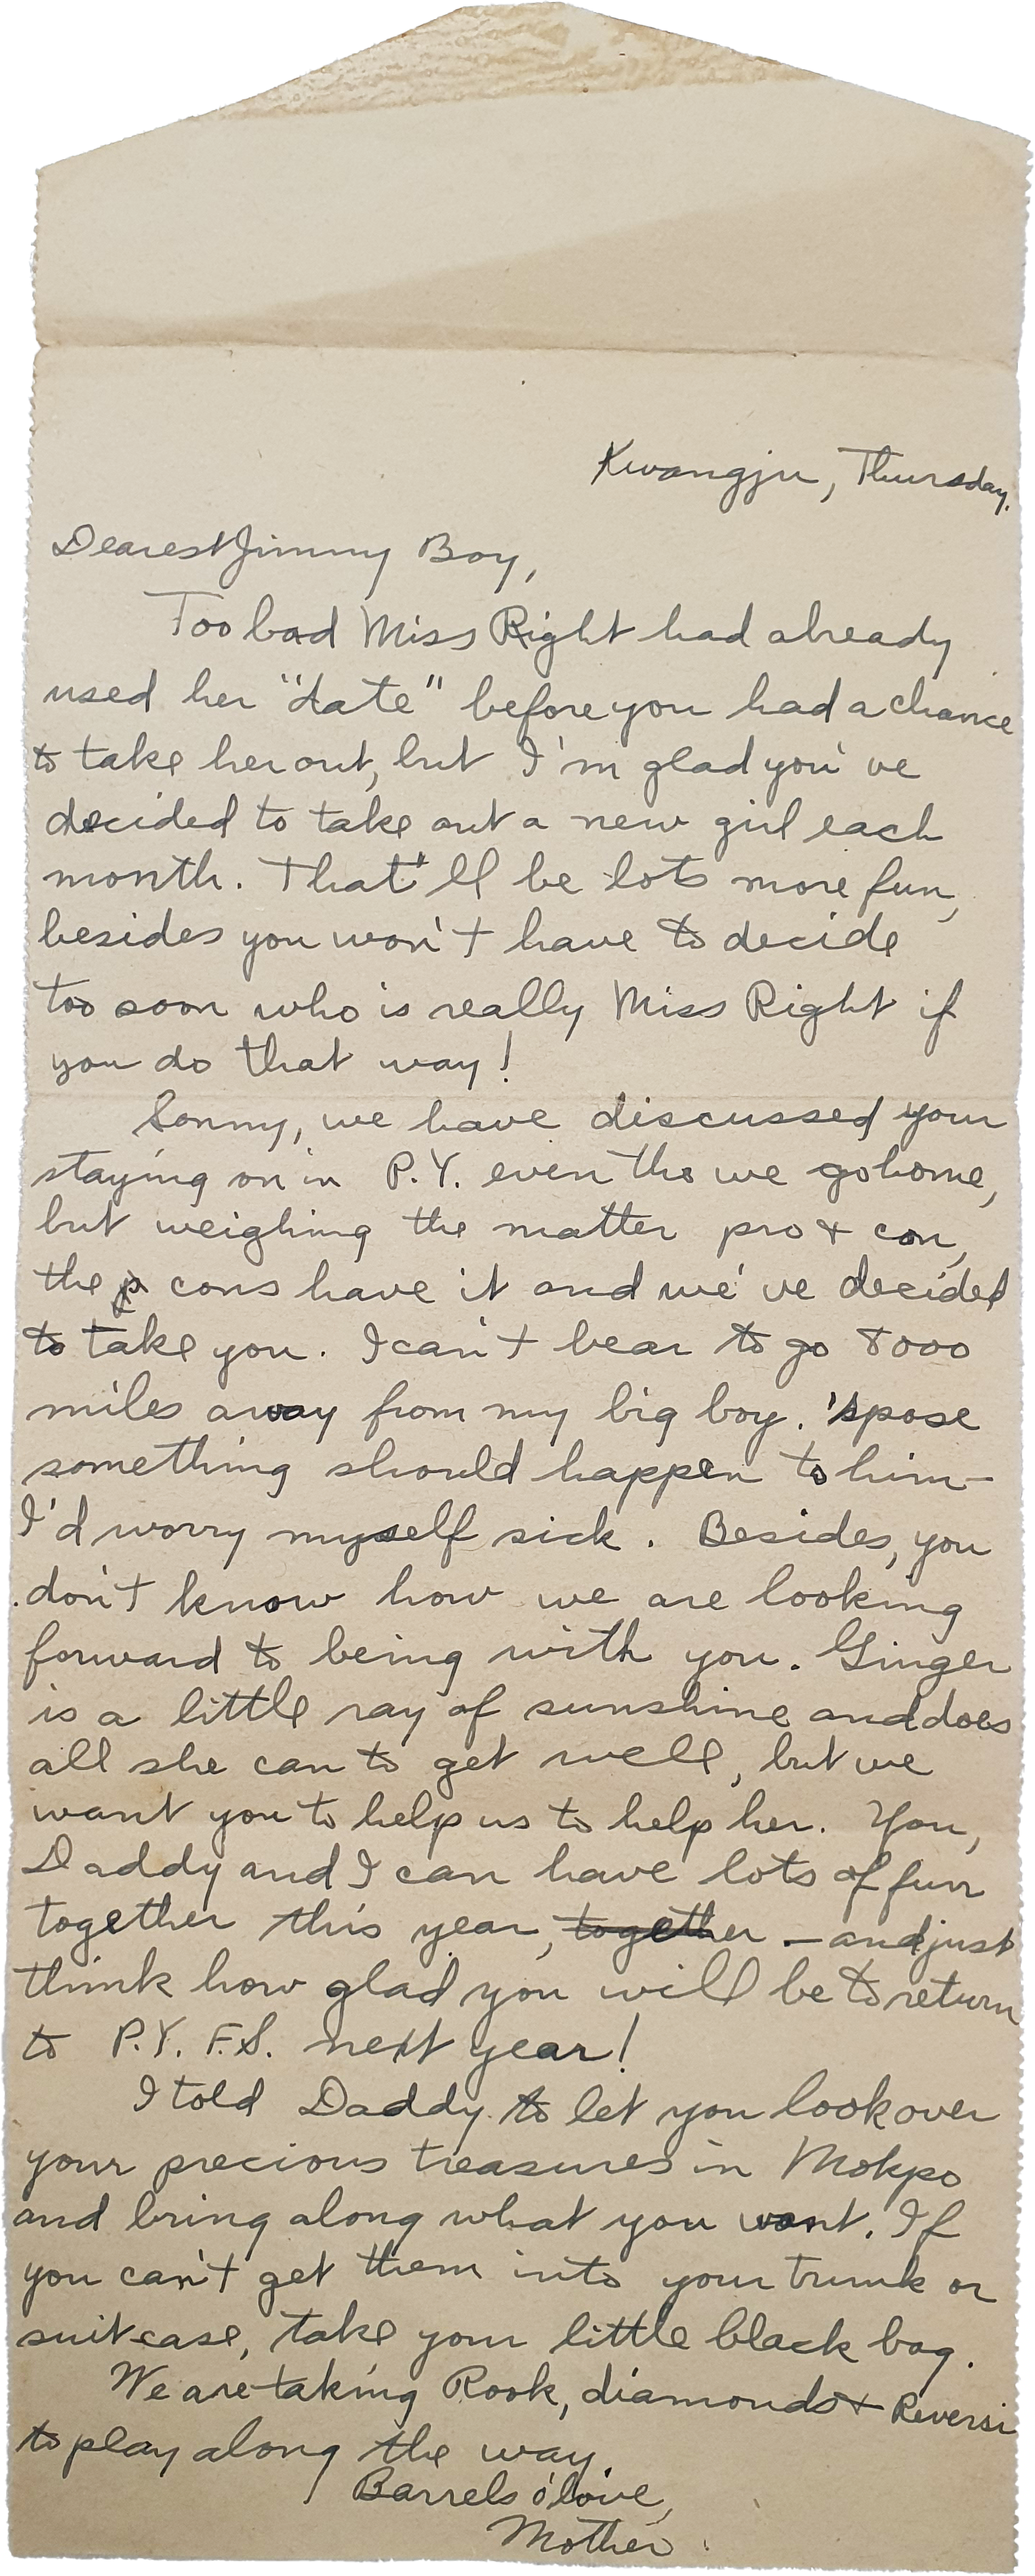 Kwangju, Thursday.
Dearest Jimmy Boy,
Too bad Miss Right had already
used her "date" before you had a chance
to take her out, but I'm glad you've
decided to take out a new girl each
month. That'll be lots more fun,
besides you won't have to decide
too soon who is really Miss Right if
you do that way!
Sonny, we have discussed your
staying on in P.Y. even tho we go home,
but weighing the matter pro & con,
the p cons have it and we've decided
to take you. I can't bear to go 8000
miles away from my big boy. 'spose
something should happen to him—
I'd worry myself sick. Besides, you
don't know how we are looking
forward to being with you. Ginger
is a little ray of sunshine and does
all she can to get well, but we
want you to help us to help her. You,
Daddy and I can have lots of fun
together this year, together — and just
think how glad you will be to return
to P.Y.F.S. next year!
I told Daddy to let you look over
your precious treasures in Mokpo
and bring along what you want. If
you can't get them into your trunk or
suitcase, take your little black bag.
We are taking Rook, diamonds & Reversi
to play along the way.
Barrels o' love,
Mother.